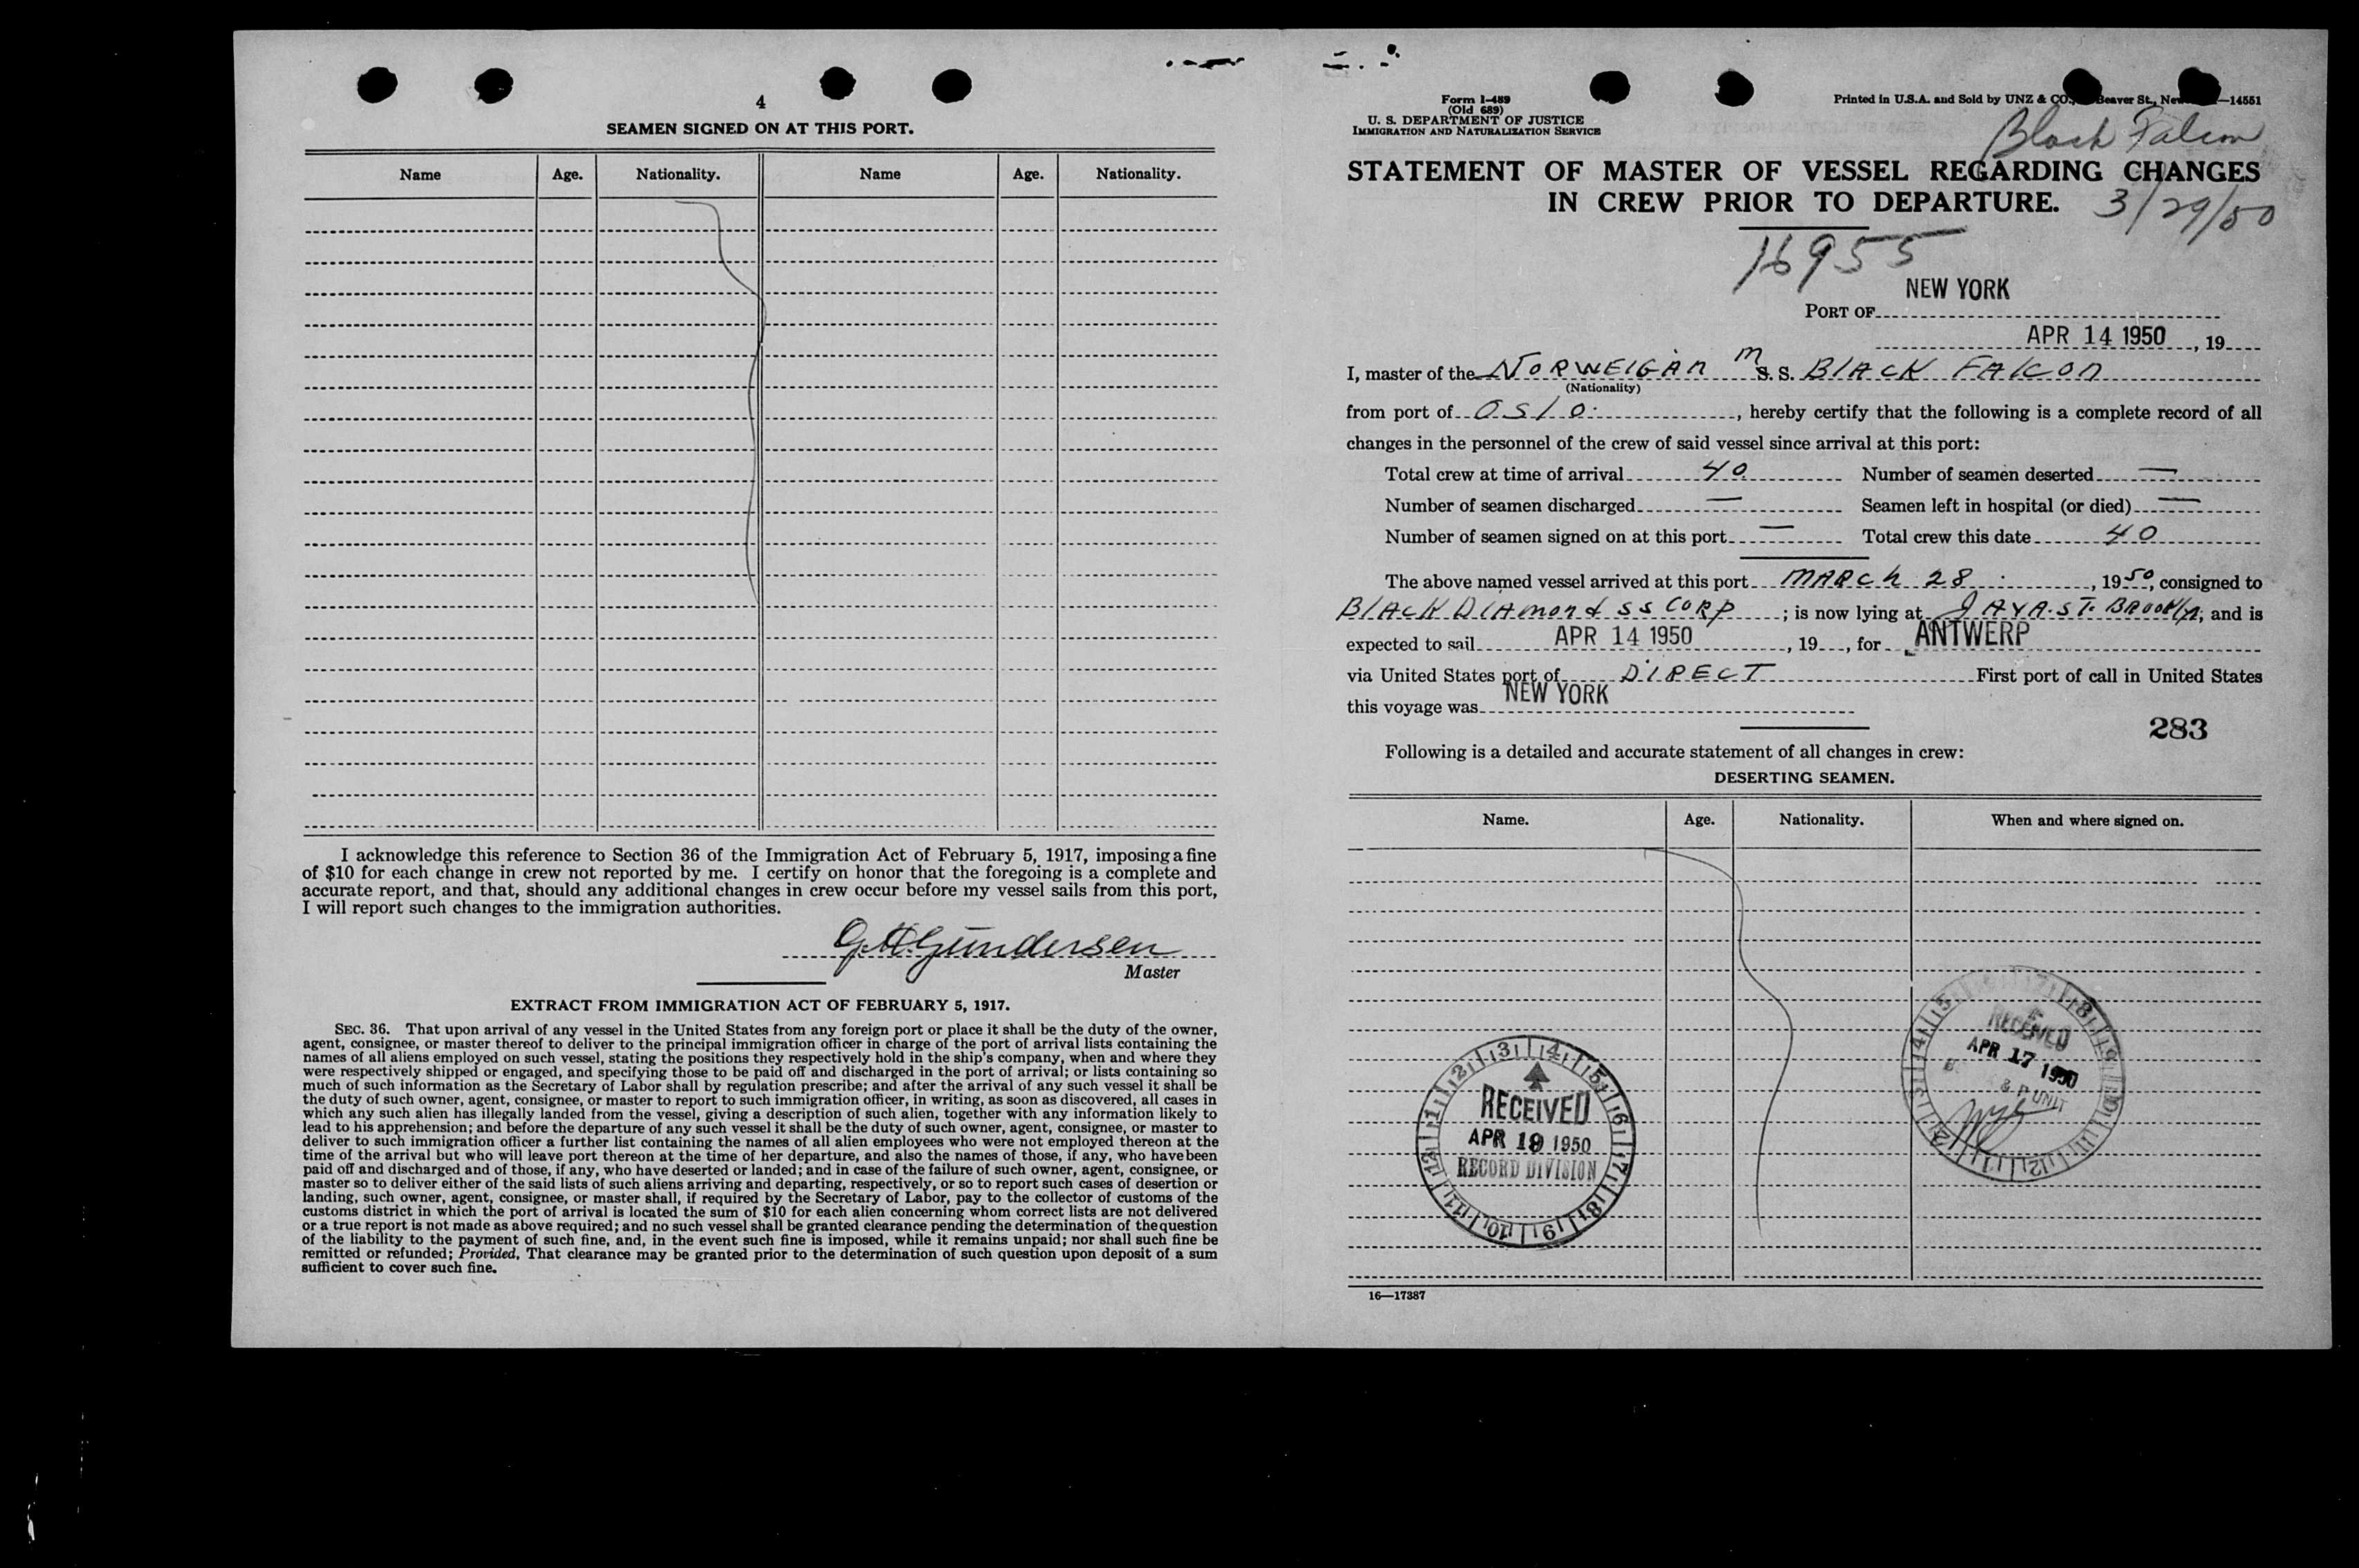 4
SEAMEN SIGNED ON AT THIS PORT.
Name Age. Nationality. Name Age. Nationality.
I acknowledge this reference to Section 36 of the Immigration Act of February 5, 1917, imposing a fine
of $10 for each change in crew not reported by me. I certify on honor that the foregoing is a complete and
accurate report, and that, should any additional changes in crew occur before my vessel sails from this port,
I will report such changes to the immigration authorities.
G.H.Gundersen
Master
EXTRACT FROM IMMIGRATION ACT OF FEBRUARY 5, 1917.
SEC. 36. That upon arrival of any vessel in the United States from any foreign port or place it shall be the duty of the owner,
agent, consignee, or master thereof to deliver to the principal immigration officer in charge of the port of arrival lists containing the
names of all aliens employed on such vessel, stating the positions they respectively hold in the ship's company, when and where they
were respectively shipped or engaged, and specifying those to be paid off and discharged in the port of arrival; or lists containing so
much of such information as the Secretary of Labor shall by regulation prescribe; and after the arrival of any such vessel it shall be
the duty of such owner, agent, consignee, or master to report to such immigration officer, in writing, as soon as discovered, all cases in
which any such alien has illegally landed from the vessel, giving a description of such alien, together with any information likely to
lead to his apprehension; and before the departure of any such vessel it shall be the duty of such owner, agent, consignee, or master to
deliver to such immigration officer a further list containing the names of all alien employees who were not employed thereon at the
time of the arrival but who will leave port thereon at the time of her departure, and also the names of those, if any, who have been
paid off and discharged and of those, if any, who have deserted or landed; and in case of the failure of such owner, agent, consignee, or
master so to deliver either of the said lists of such aliens arriving and departing, respectively, or so to report such cases of desertion or
landing, such owner, agent, consignee, or master shall, if required by the Secretary of Labor, pay to the collector of customs of the
customs district in which the port of arrival is located the sum of $10 for each alien concerning whom correct lists are not delivered
or a true report is not made as above required; and no such vessel shall be granted clearance pending the determination of the question
of the liability to the payment of such fine, and, in the event such fine is imposed, while it remains unpaid; nor shall such fine be
remitted or refunded; Provided, That clearance may be granted prior to the determination of such question upon deposit of a sum
sufficient to cover such fine.
Form I-489
(Old 689)
U. S. DEPARTMENT OF JUSTICE
IMMIGRATION AND NATURALIZATION SERVICE
Printed in U.S.A. and Sold by UNZ & CO., Beaver St., New —14551
Black Falcon
STATEMENT OF MASTER OF VESSEL REGARDING CHANGES
IN CREW PRIOR TO DEPARTURE.
3/29/50
16955
NEW YORK
PORT OF
APR 14 1950, 19
I, master of the NORWEIGAN M S. S. BLACK FALCON
(Nationality)
from port of OSLO, hereby certify that the following is a complete record of all
changes in the personnel of the crew of said vessel since arrival at this port:
Total crew at time of arrival 40 Number of seamen deserted —
Number of seamen discharged — Seamen left in hospital (or died) —
Number of seamen signed on at this port — Total crew this date 40
The above named vessel arrived at this port MARCH 28, 1950, consigned to
BLACK DIAMOND SS CORP; is now lying at JAYA.ST. BROOKLYN; and is
expected to sail APR 14 1950, 19, for ANTWERP
via United States port of DIRECT First port of call in United States
this voyage was NEW YORK
283
Following is a detailed and accurate statement of all changes in crew:
DESERTING SEAMEN.
Name. Age. Nationality. When and where signed on.
RECEIVED
APR 17 1950
& P UNIT
RECEIVED
APR 19 1950
RECORD DIVISION
16—17387